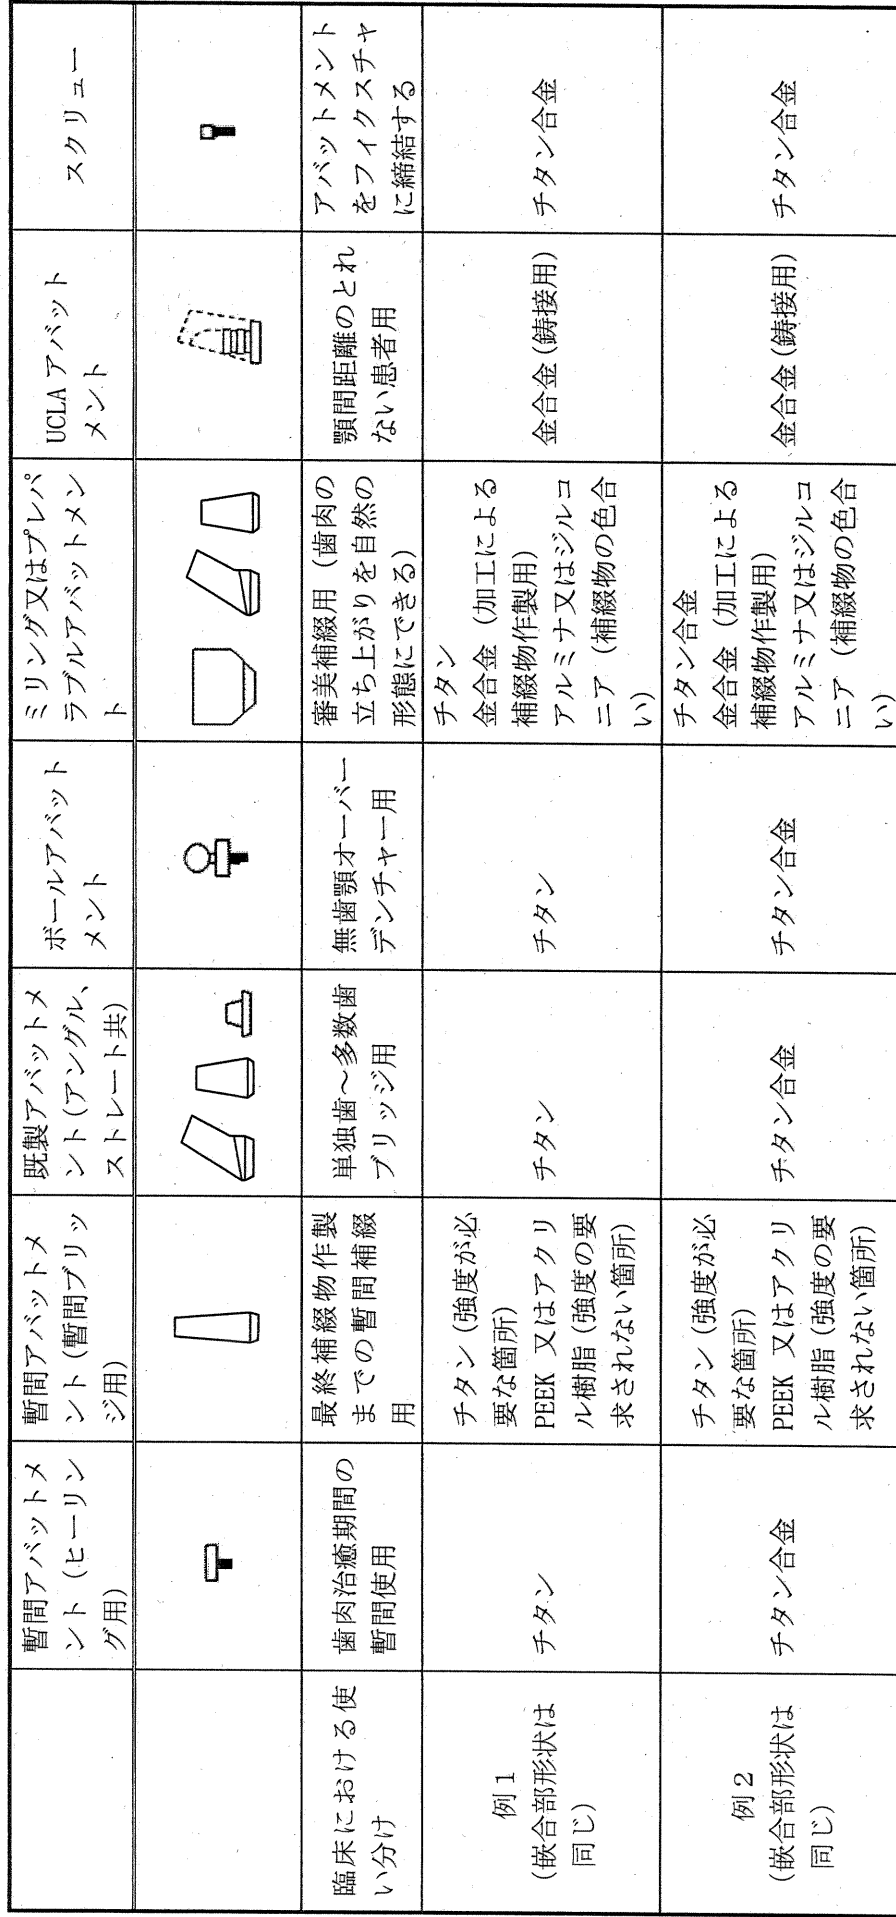 暫間アバットメ
ント（ヒーリン
グ用）
暫間アバットメ
ント(暫間ブリッ
ジ用)
既製アバットメ
ント(アングル、
ストレート共)
ボールアバット
メント
ミリング又はプレパ
ラブルアバットメン
ト
UCLA アバット
メント
スクリュー
臨床における使
い分け
歯肉治癒期間の
暫間使用
最終補綴物作製
までの暫間補綴
用
単独歯～多数歯
ブリッジ用
無歯顎オーバー
デンチャー用
審美補綴用（歯肉の
立ち上がりを自然の
形態にできる）
顎間距離のとれ
ない患者用
アバットメント
をフィクスチャ
に締結する
例１
(嵌合部形状は
同じ)
チタン
チタン(強度が必
要な箇所)
PEEK 又はアクリ
ル樹脂(強度の要
求されない箇所)
チタン
チタン
チタン
金合金（加工による
補綴物作製用)
アルミナ又はジルコ
ニア（補綴物の色合
い）
金合金(鋳接用)
チタン合金
例２
(嵌合部形状は
同じ)
チタン合金
チタン(強度が必
要な箇所)
PEEK 又はアクリ
ル樹脂(強度の要
求されない箇所)
チタン合金
チタン合金
チタン合金
金合金（加工による
補綴物作製用)
アルミナ又はジルコ
ニア（補綴物の色合
い）
金合金(鋳接用)
チタン合金